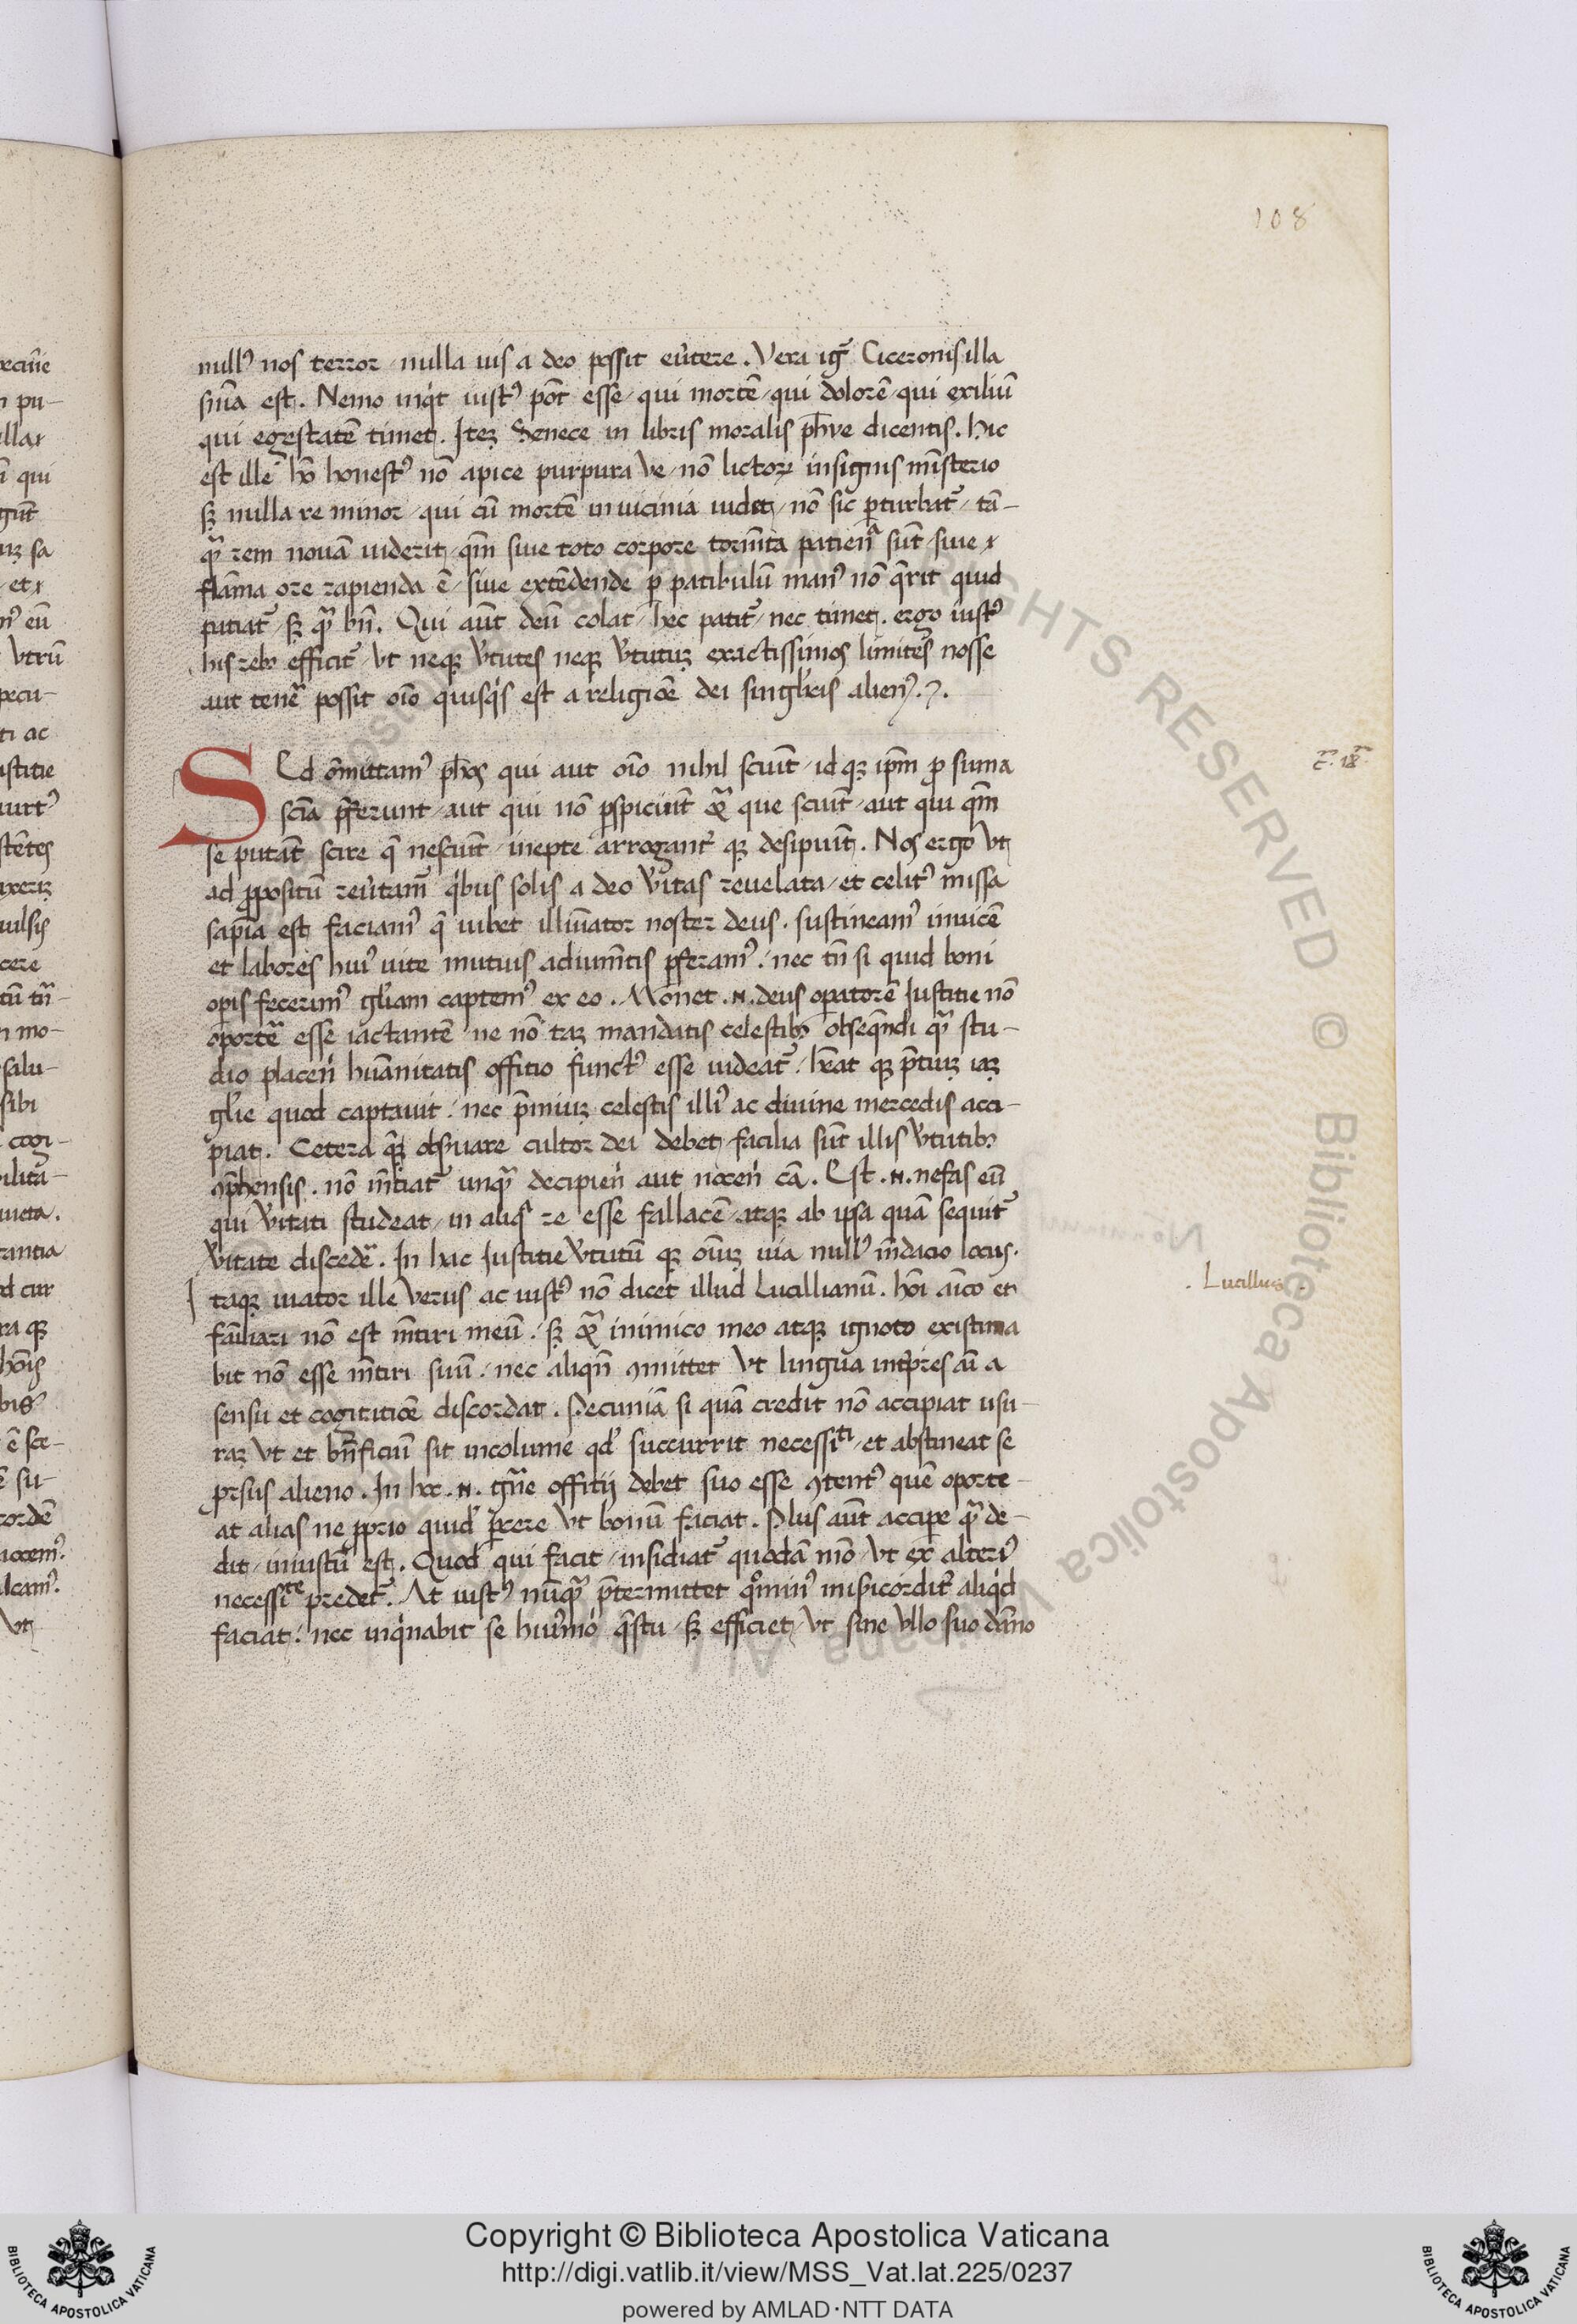 108
null᷒ nos terror / nulla uis a deo possit eu̓tere . Vera ig̃ Ciceronis illa
sn̄ia est . Nemo inq̇t iust᷒ pōt esse / qui mortē / qui dolorē / qui exiliū
qui egestatē timet . Iteꝫ Senece in libris moralis ph̄ye dicentis . hic
est ille hō honest᷒ nō apice purpura ve / nō lictoꝝ insignis mīsterio
sꝫ nulla re minor / qui cū mortē in uicinia uidet / nō sic ꝑturbat̃ / tā-
q̃ rem nouā uiderit / qm̄ siue toto corpore torm̄ta patienͣ sūt / siue
flāma ore rapienda ē / siue extēdende ꝑ patibulū man᷒ nō q̄rit quid
patiat̃ / sꝫ q̃ bn̄ . Qui aūt deū colat / hec patit̃ / nec timet . ergo iust᷒
his reb᷒ efficit̃ / vt neqꝫ v̓tutes neqꝫ v̓tutuꝫ exactissimos limites nosse
aut tenē possit oīo quisq̇s est a religiōe dei singl̓aris alien᷒ .
SEd ōmittam᷒ ph̄os qui aut oīo nihil sciūt / id qꝫ ip̄m ꝓ suma
scīa p̄ferunt / aut qui nō ꝑspiciūt que sciūt / aut qui qm̄
se putāt scire q̄ nesciūt / inepte arrogant̓ qꝫ desipiūt . Nos ergo vt
ad ꝓpositū reu̓tam̃ q̇bus solis a deo v̓itas reuelata / et celit᷒ missa
sapīa est / faciam᷒ q̄ iubet illuīator noster deus . sustineam᷒ inuicē
et labores hui᷒ uite mutuis adium̄tis ꝑferam᷒ . nec tn̄ si quid boni
opis fecerim᷒ gl̓iam captem᷒ ex eo . Monet .n. deus oꝑatorē Iustitie nō
oportē esse iactantē ne nō taꝫ mandatis celestib᷒ obseq̄ndi q̃ stu-
dio placen̓ huānitatis offitio funct᷒ esse uideat̃ . h̄eat qꝫ p̄tiuꝫ iaꝫ
gl̓ie quod captauit . nec p̄miuꝫ celestis illi᷒ ac diuine mercedis acci-
piat . Cetera q̄ obs̓uare cultor dei debet / facilia sūt illis v̓tutib᷒
ꝯp̄hensis . nō m̄tiat̃ unq̃ decipien̓ aut nocen̓ cā . Est .n. nefas eū
qui v̓itati studeat / in aliq̃ re esse fallacē / atqꝫ ab ipsa quā sequit̃
v̓itate discedē . In hac Iustitie v̓tutū qꝫ oīuꝫ uia null᷒ m̄dacio locus .
Itaqꝫ uiator ille verus ac iust᷒ nō dicet illud Lucillianū . hoī aīco et
fāiliari nō est m̄tiri meū . sꝫ inimico meo atqꝫ ignoto existima
bit nō esse m̄tiri suū . nec aliqn̄ ꝯmittet vt lingua int̓pres aī a
sensu et cogitatiōe discordat . Pecuniā si quā credit nō accipiat usu-
raꝫ vt et bn̄ficiū sit incolume qd̓ succurrit necessiᵗⁱ / et abstineat se
ꝓrsus alieno . In hoc .n. gn̄e offitij debet suo esse ꝯtent᷒ quē oporte-
at alias ne ꝓprio quid̓ ꝑcere vt bonū faciat . Plus aūt acciꝑe q̃ de-
dit / iniustū est . Quod qui facit / insidiat̃ quodā mō / vt ex alteri᷒
necessiᵗᵉ predet̃ . At iust᷒ nūq̃ p̄termittet q̊min᷒ mis̓icordit̓ aliq̇d
faciat . nec inq̇nabit se hui᷒mōi q̄stu / sꝫ efficiet / vt sine vllo suo dāno
. Lucillus .
Copyright © Biblioteca Apostolica Vaticana
http://digi.vatlib.it/view/MSS_Vat.lat.225/0237
powered by AMLAD·NTT DATA
BIBLIOTECA APOSTOLICA VATICANA
BIBLIOTECA APOSTOLICA VATICANA